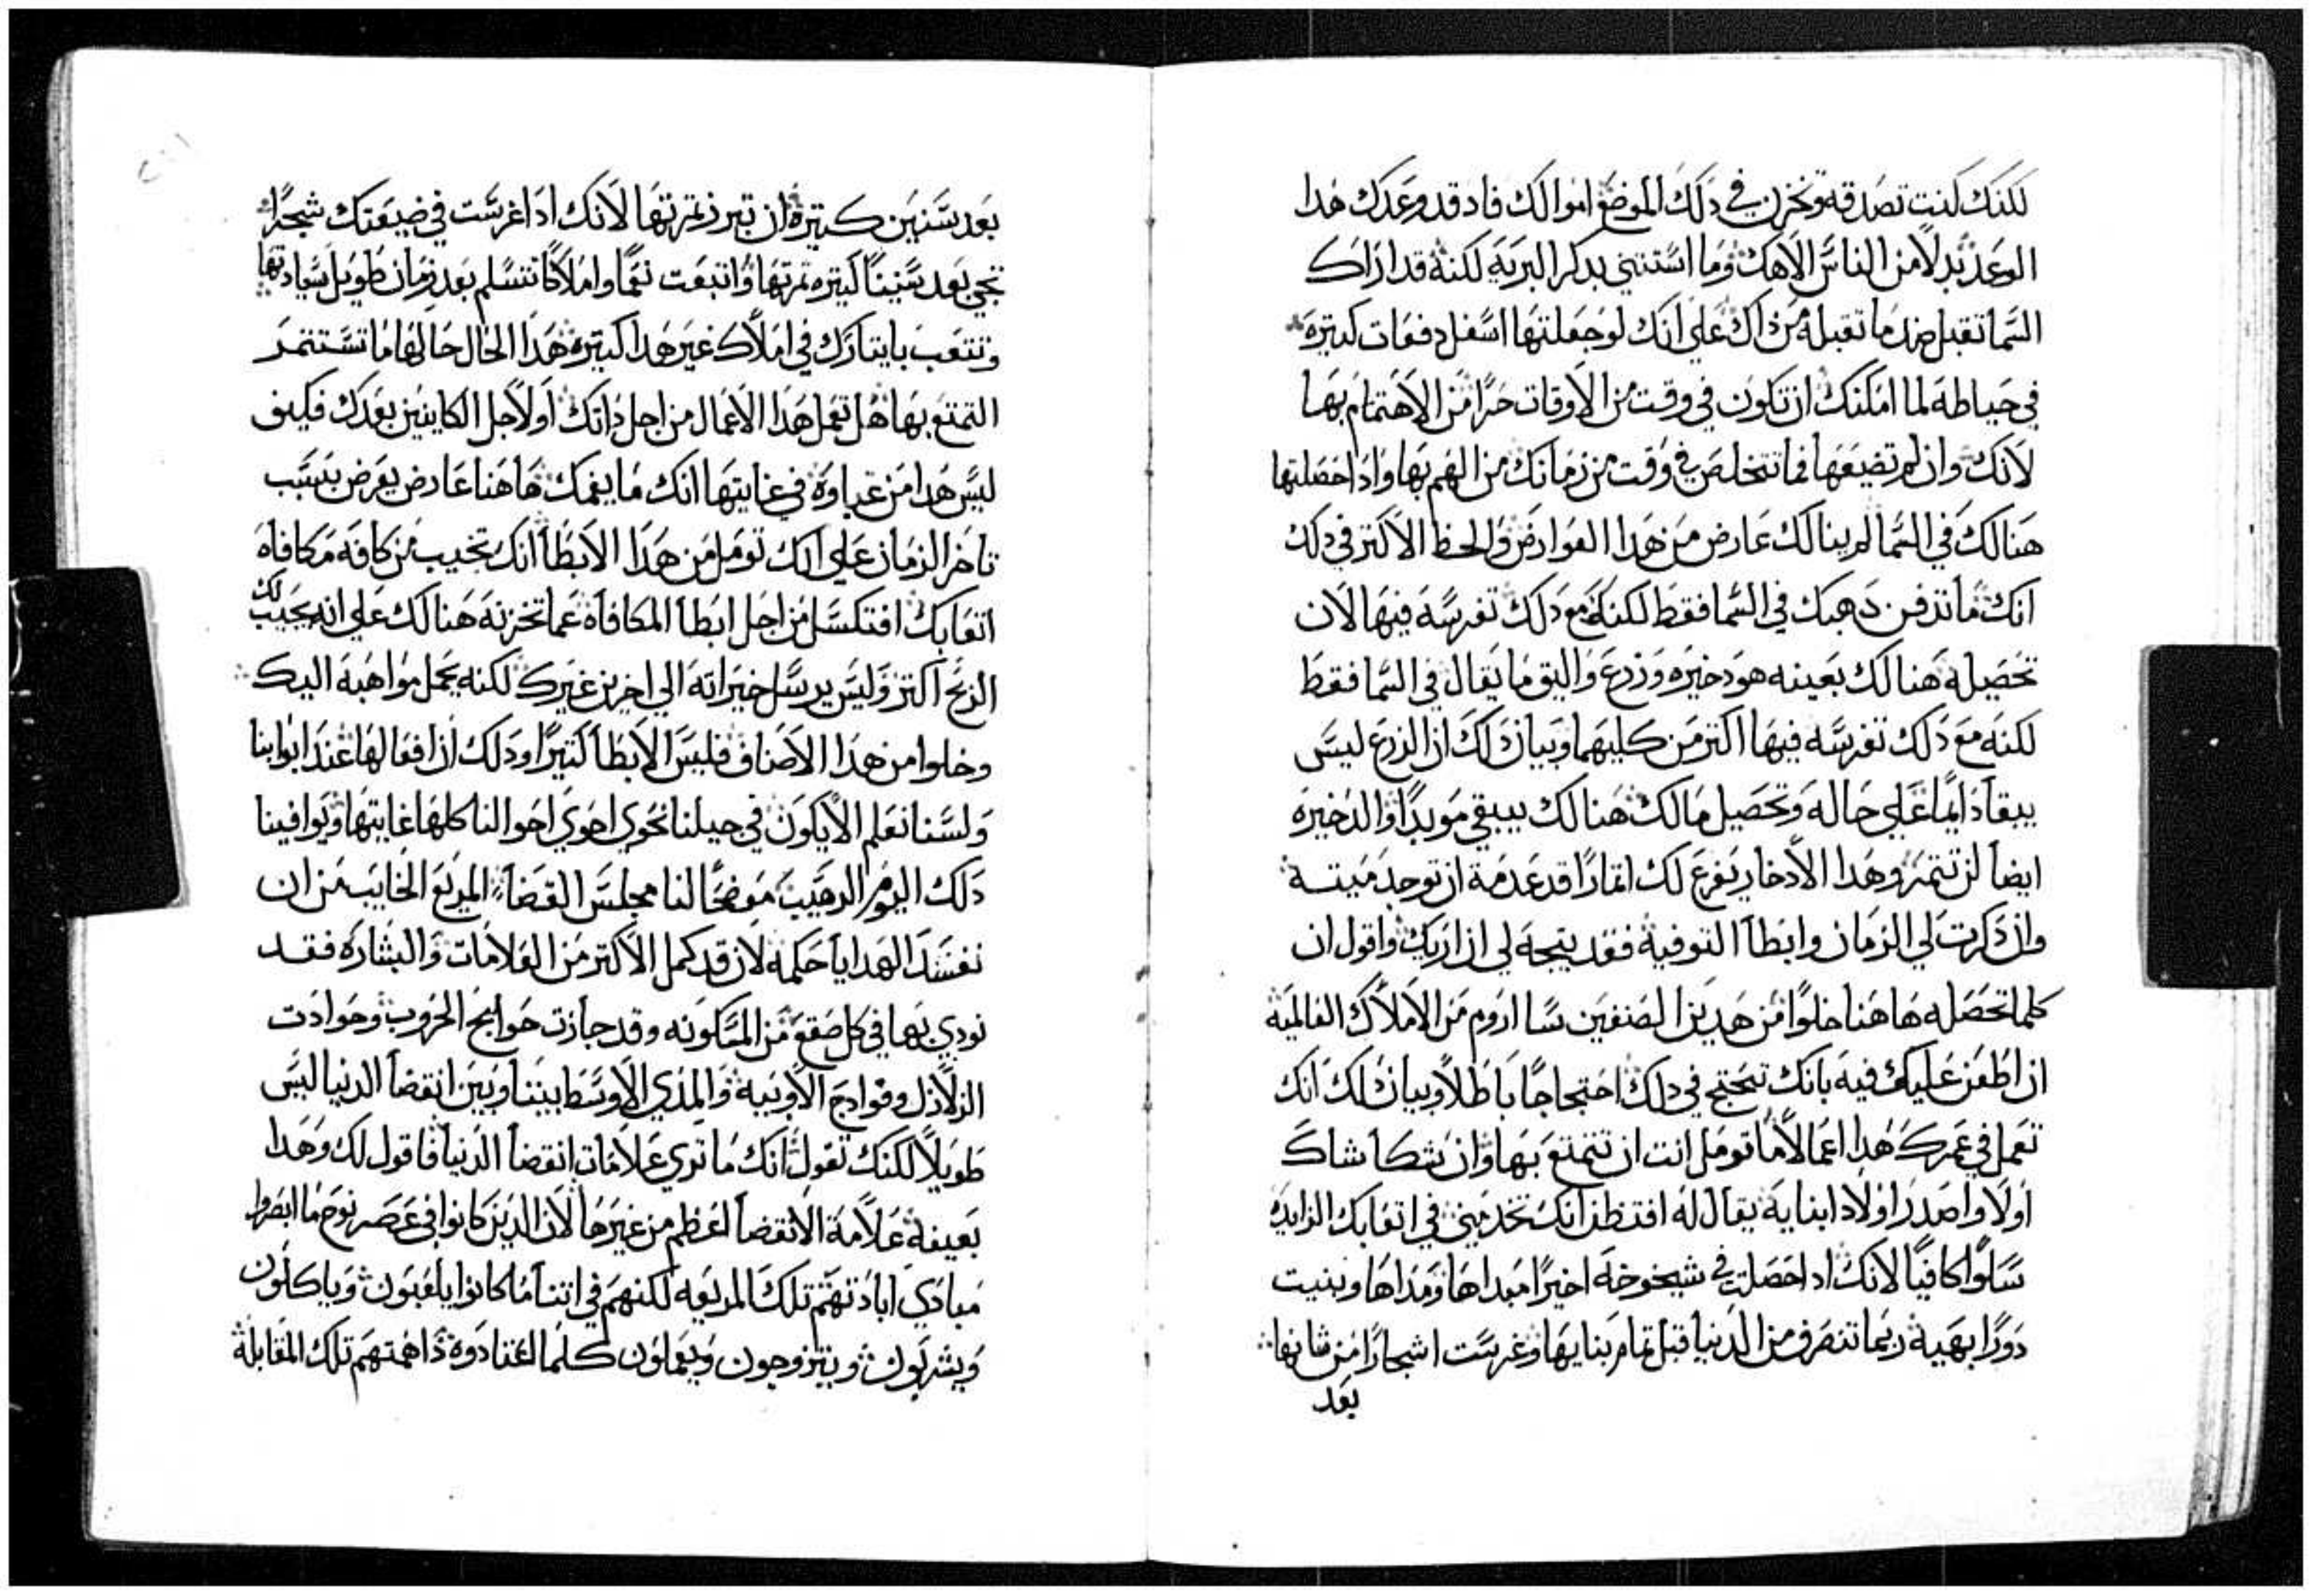 لكنك كنت تصدقه وتخزن في دلك الموضع اموالك فاد قد وعدك هدا
الوعد بدلاً من الناس الاهك وما استتني بدكر البريه لكنه قد اراك
السما تقبل ضد ما تقبله من داك على انك لو جعلتها اسفل دفعات كتيره
في حياطه لما امكنك ان تكون في وقت من الاوقات حرًا من الاهتمام بها
لانك وان لم تضيعها فما تتخلص في وقت من زمانك من الهم بها وادا حصلتها
هنالك في السما لم ينالك عارض من هدا العوارض والحظ الاكتر في دلك
انك ما تدفن دهبك في السما فقط لكنك مع دلك تغرسه فيها لان
تحصيله هنالك بعينه هو دخيره وزرع واليق ما يقال في السما فقط
لكنه مع دلك تغرسه فيها اكتر من كليهما وبيان دلك ان الزرع ليس
يبقا دايمًا على حاله وتحصيل مالك هنالك يبقي موبدًا والدخيره
ايضاً لن تتمر وهدا الادخار يفرع لك اتمارًا قد عدمة ان توجد ميتة
وان دكرت لي الزمان وابطاً التوفية فقد يتجه لي ان اريك واقول ان
كلما تحصله هاهنا خلوًا من هدين الصنفين سا اروم من الاملاك العالمية
ان اطعن عليك فيه بانك تحتج في دلك احتجاجًا باطلاً وبيان دلك انك
تعمل في عمرك هدا اعمالاً ما تومل انت ان تتمتع بها وان شكا شاك
اولاً واصدر اولاد ابنايه يقال له افتظن انك تخدمني في اتعابك الزايده
سلوًا كافيًا لانك ادا حصلت في شيخوخه اخيرًا مبداها ومداها وبنيت
دورًا بهية ربما تنصرف من الدنيا قبل تمام بنايها وغرست اشجارًا من شانها
بعد
بعد سنين كتيرة ان تبرز تمرتها لانك ادا غرست في ضيعتك شجرًا
تجي بعد سنينًا كتيره تمرتها واتبعت نعمًا واملاكًا تتسلم بعد زمان طويل سيادتها
وتتعب بايتارك في املاك غير هدا كتيره هدا الحال حالها ما تستتمر
التمتع بها هل تعمل هدا الاعمال من اجل داتك او لاجل الكاينين بعدك فكيف
ليس هدا من غباوة في غايتها انك ما يغمك هاهنا عارض يعرض بسبب
تاخر الزمان على انك تومل من هدا الابطا انك تخيب من كافة مكافاه
اتعابك افتكسل من اجل ابطا المكافاة عما تخزنه هنالك على انه يجيب لك
الربح اكتر وليس يرسل خيراته الي اخرين غيرك لكنه يحمل مواهبه اليك
وخلوا من هدا الاصناف فليس الابطا كتيرًا ودلك ان افعالها عند ابوابنا
ولسنا نعلم الا يكون في جيلنا تحوي احوي احوالنا كلها غايتها ويوافينا
دلك اليوم الرهيب موضحًا لنا مجلس القضاً المريع الخايب من ان
تفسد الهدايا حكمه لان قد كمل الاكتر من العلامات والبشاره فقد
نودي بها في كل صقع من المسكونه وقد جازت حوايج الحروب وحوادت
الزلازل وفوادح الاوبية والمدي الاوسط بيننا وبين انقضا الدنيا ليس
طويلاً لكنك تقول انك ما تري علامات انقضا الدنيا فاقول لك وهدا
بعينه علامة الانقضا اعظم من غيرها لان الدين كانوا في عصر نوح ما ابصروا
مبادي ابادتهم تلك المريعه لكنهم في اتنا ما كانوا يلعبون وياكلون
ويشربون ويتزوجون ويعملون كلما اعتادوه داهمتهم تلك المقابلة